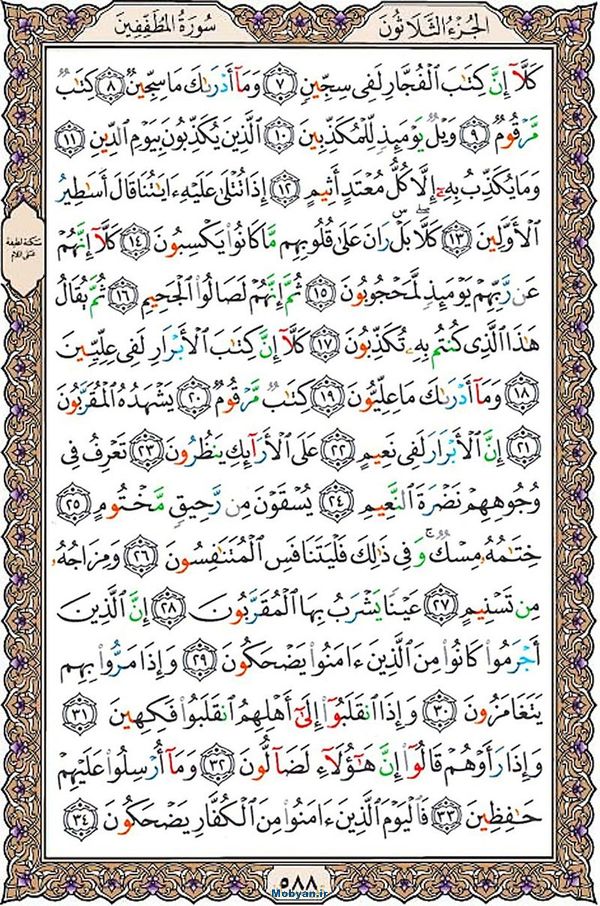 الجُزءُ الثَّلاثُونَ
سُورَةُ المُطَفِّفِينَ
كَلَّآ إِنَّ كِتَٰبَ ٱلْفُجَّارِ لَفِى سِجِّينٍ ٧ وَمَآ أَدْرَىٰكَ مَا سِجِّينٌ ٨ كِتَٰبٌ
مَّرْقُومٌ ٩ وَيْلٌ يَوْمَئِذٍ لِّلْمُكَذِّبِينَ ١٠ ٱلَّذِينَ يُكَذِّبُونَ بِيَوْمِ ٱلدِّينِ ١١
وَمَا يُكَذِّبُ بِهِۦٓ إِلَّا كُلُّ مُعْتَدٍ أَثِيمٍ ١٢ إِذَا تُتْلَىٰ عَلَيْهِ ءَايَٰتُنَا قَالَ أَسَٰطِيرُ
ٱلْأَوَّلِينَ ١٣ كَلَّا ۖ بَلْ ۜ رَانَ عَلَىٰ قُلُوبِهِم مَّا كَانُوا۟ يَكْسِبُونَ ١٤ كَلَّآ إِنَّهُمْ
عَن رَّبِّهِمْ يَوْمَئِذٍ لَّمَحْجُوبُونَ ١٥ ثُمَّ إِنَّهُمْ لَصَالُوا۟ ٱلْجَحِيمِ ١٦ ثُمَّ يُقَالُ
هَٰذَا ٱلَّذِى كُنتُم بِهِۦ تُكَذِّبُونَ ١٧ كَلَّآ إِنَّ كِتَٰبَ ٱلْأَبْرَارِ لَفِى عِلِّيِّينَ
١٨ وَمَآ أَدْرَىٰكَ مَا عِلِّيُّونَ ١٩ كِتَٰبٌ مَّرْقُومٌ ٢٠ يَشْهَدُهُ ٱلْمُقَرَّبُونَ
٢١ إِنَّ ٱلْأَبْرَارَ لَفِى نَعِيمٍ ٢٢ عَلَى ٱلْأَرَآئِكِ يَنظُرُونَ ٢٣ تَعْرِفُ فِى
وُجُوهِهِمْ نَضْرَةَ ٱلنَّعِيمِ ٢٤ يُسْقَوْنَ مِن رَّحِيقٍ مَّخْتُومٍ ٢٥
خِتَٰمُهُۥ مِسْكٌ ۚ وَفِى ذَٰلِكَ فَلْيَتَنَافَسِ ٱلْمُتَنَٰفِسُونَ ٢٦ وَمِزَاجُهُۥ
مِن تَسْنِيمٍ ٢٧ عَيْنًا يَشْرَبُ بِهَا ٱلْمُقَرَّبُونَ ٢٨ إِنَّ ٱلَّذِينَ
أَجْرَمُوا۟ كَانُوا۟ مِنَ ٱلَّذِينَ ءَامَنُوا۟ يَضْحَكُونَ ٢٩ وَإِذَا مَرُّوا۟ بِهِمْ
يَتَغَامَزُونَ ٣٠ وَإِذَا ٱنقَلَبُوٓا۟ إِلَىٰٓ أَهْلِهِمُ ٱنقَلَبُوا۟ فَكِهِينَ ٣١
وَإِذَا رَأَوْهُمْ قَالُوٓا۟ إِنَّ هَٰٓؤُلَآءِ لَضَآلُّونَ ٣٢ وَمَآ أُرْسِلُوا۟ عَلَيْهِمْ
حَٰفِظِينَ ٣٣ فَٱلْيَوْمَ ٱلَّذِينَ ءَامَنُوا۟ مِنَ ٱلْكُفَّارِ يَضْحَكُونَ ٣٤
سكتة لطيفة
على اللام
٥٨٨
Mobyan.ir